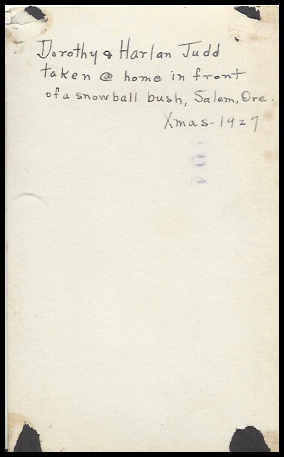 Dorothy & Harlan Judd
taken @ home in front
of a snowball bush, Salem, Ore.
Xmas-1927